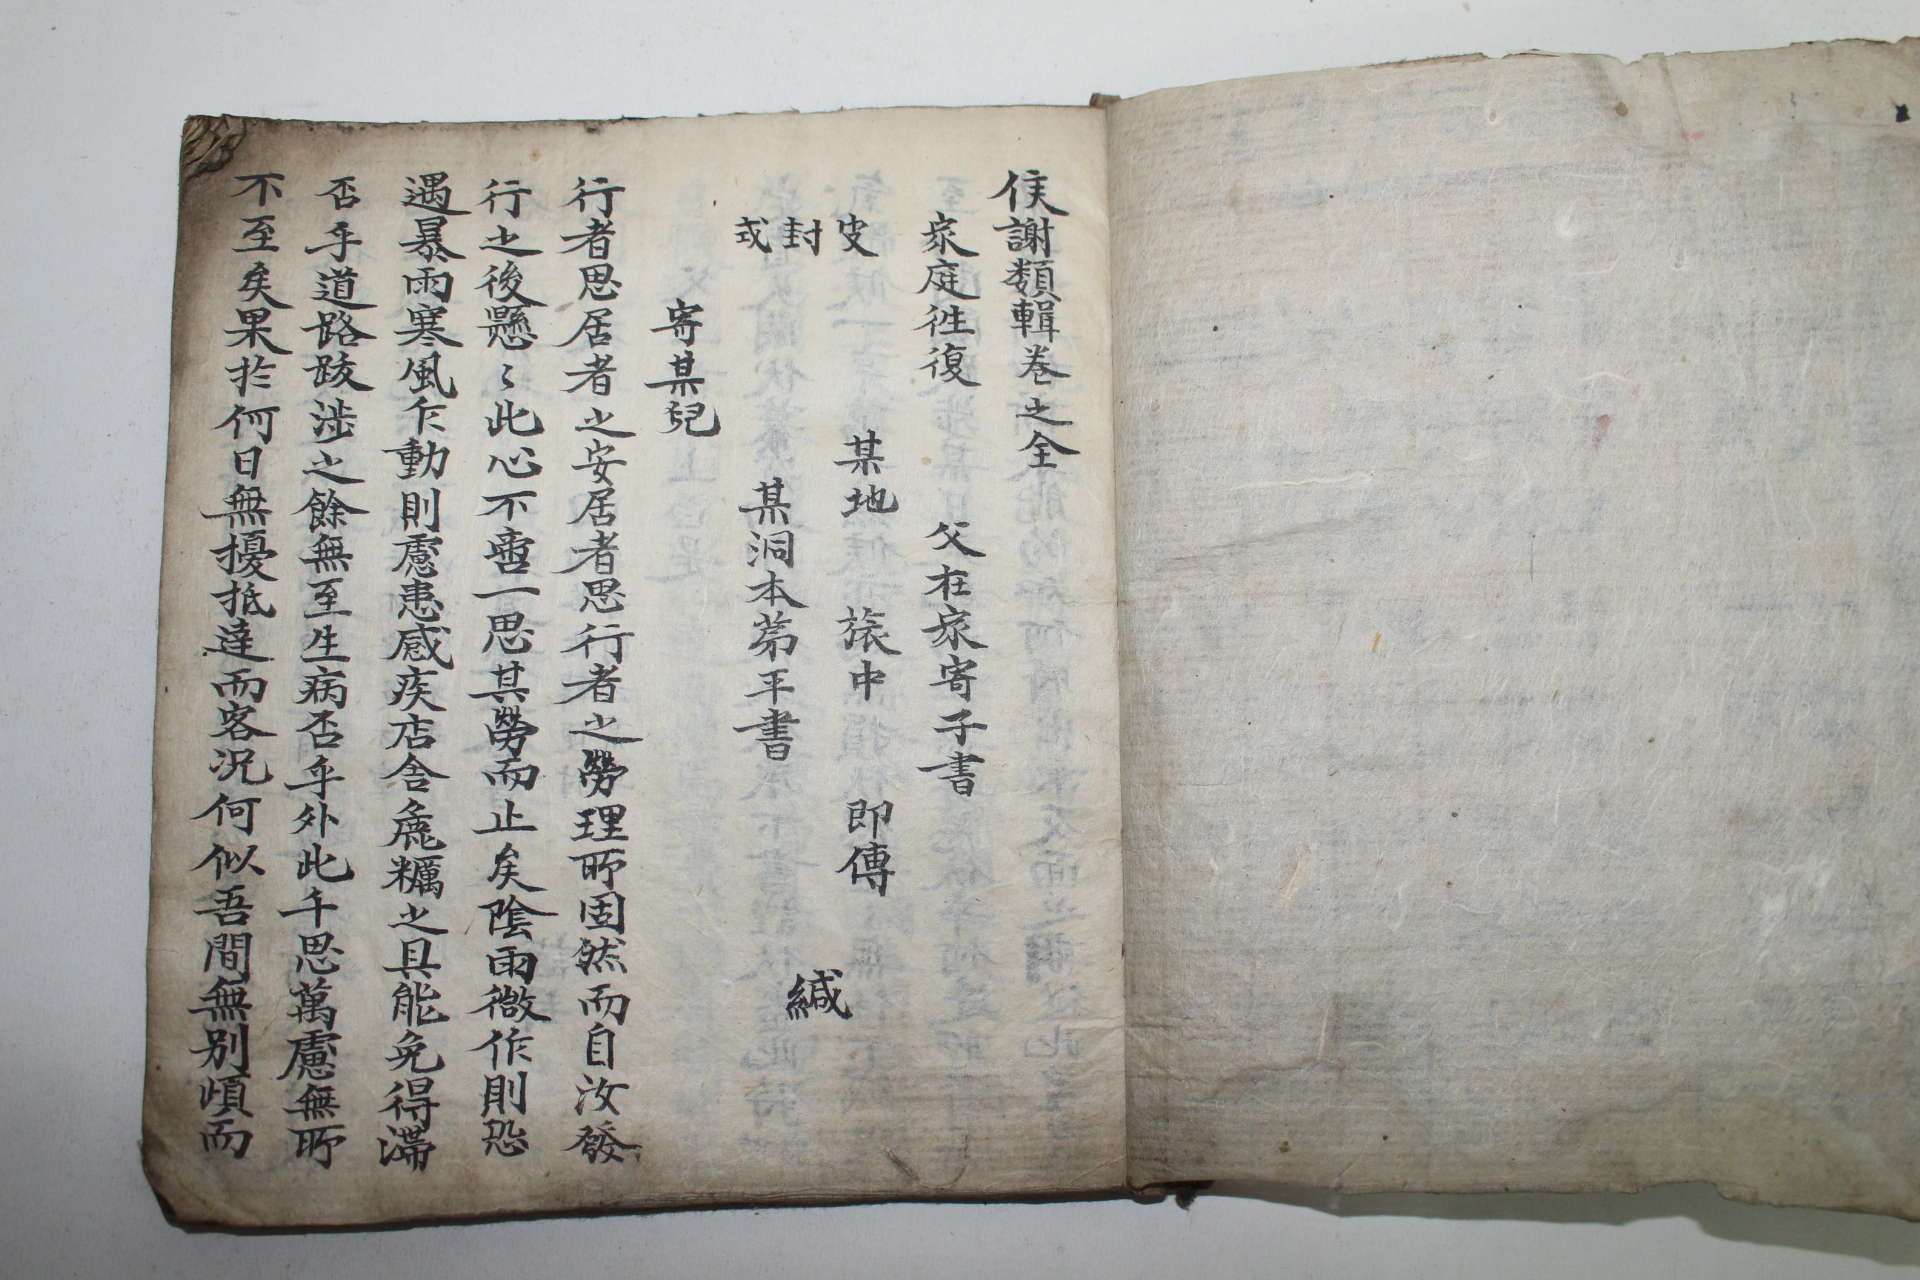 候謝類輯卷之全
家庭徃復 父在家寄子書
皮封式 某地 旅中 即傳
某洞本第平書 緘
寄某児
行者思居者之安居者思行者之勞理所固然而自汝發
行之後懸〻此心不啻一思其勞而止矣陰雨微作則恐
遇暴雨寒風乍動則慮患感疾店舍麁糲之具能免得滯
否乎道路跋涉之餘無至生病否乎外此千思萬慮無所
不至矣果於何日無擾抵達而客况何似吾間無別頉而